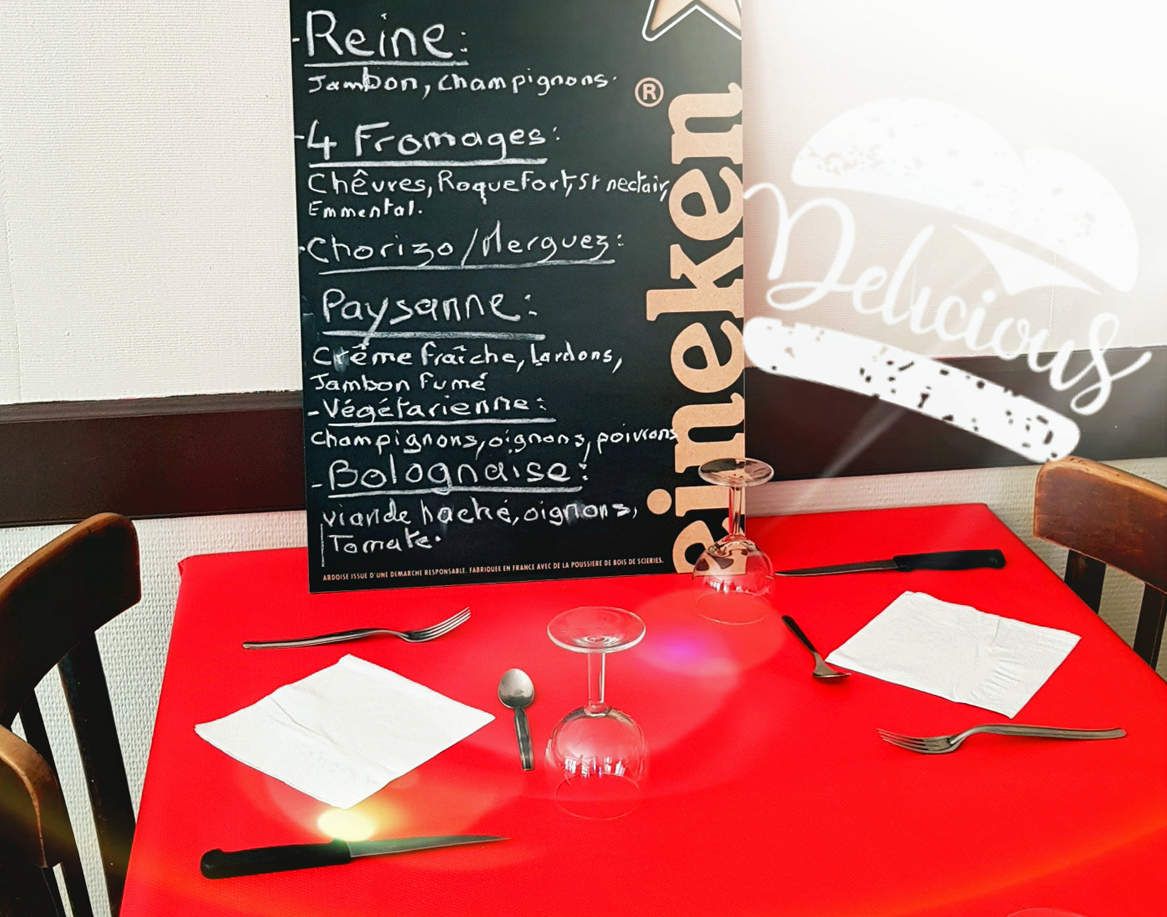 - Reine:
Jambon, champignons.
- 4 Fromages:
Chêvres, Roquefort, St nectair,
Emmental.
- Chorizo/Merguez:
Paysanne:
Crême fraîche, Lardons,
Jambon fumé
- Végétarienne:
Champignons, oignons, poivrons
- Bolognaise:
viande haché, oignons,
Tomate.
ARDOISE ISSUE D'UNE DEMARCHE RESPONSABLE. FABRIQUEE EN FRANCE AVEC DE LA POUSSIERE DE BOIS DE SCIERIES.
eineken®
Delicious